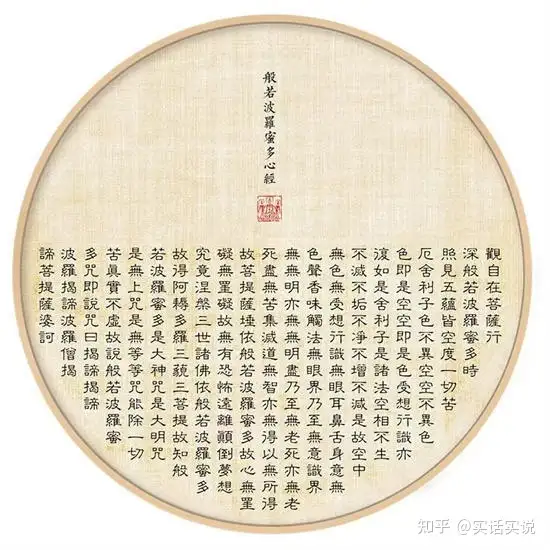 般若波羅蜜多心經
觀自在菩薩行
深般若波羅蜜多時
照見五蘊皆空度一切苦
厄舍利子色不異空空不異色
色即是空空即是色受想行識亦
復如是舍利子是諸法空相不生
不滅不垢不淨不增不減是故空中
無色無受想行識無眼耳鼻舌身意無
色聲香味觸法無眼界乃至無意識界
無無明亦無無明盡乃至無老死亦無老
死盡無苦集滅道無智亦無得以無所得
故菩提薩埵依般若波羅蜜多故心無罣
礙無罣礙故無有恐怖遠離顛倒夢想
究竟涅槃三世諸佛依般若波羅蜜多
故得阿耨多羅三藐三菩提故知般
若波羅蜜多是大神咒是大明咒
是無上咒是無等等咒能除一切
苦真實不虛故說般若波羅蜜
多咒即說咒曰揭諦揭諦
波羅揭諦波羅僧揭
諦菩提薩婆訶
知乎 @实话实说